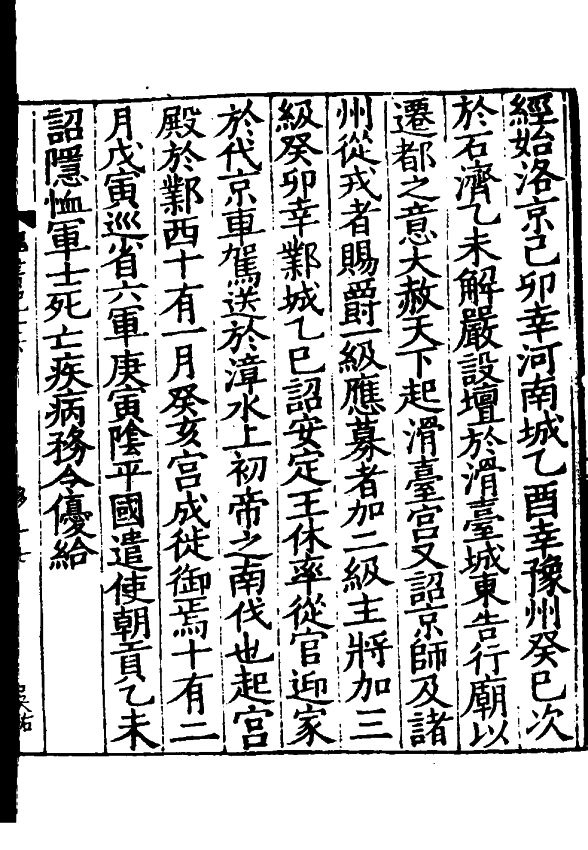 經始洛京己卯幸河南城乙酉幸豫州癸巳次
於石濟乙未解嚴設壇於滑臺城東告行廟以
遷都之意大赦天下起滑臺宮又詔京師及諸
州從戎者賜爵一級應募者加二級主將加三
級癸卯幸鄴城乙巳詔安定王休率從官迎家
於代京車駕送於漳水上初帝之南伐也起宮
殿於鄴西十有一月癸亥宮成徙御焉十有二
月戊寅巡省六軍庚寅陰平國遣使朝貢乙未
詔隱恤軍士死亡疾病務令優給